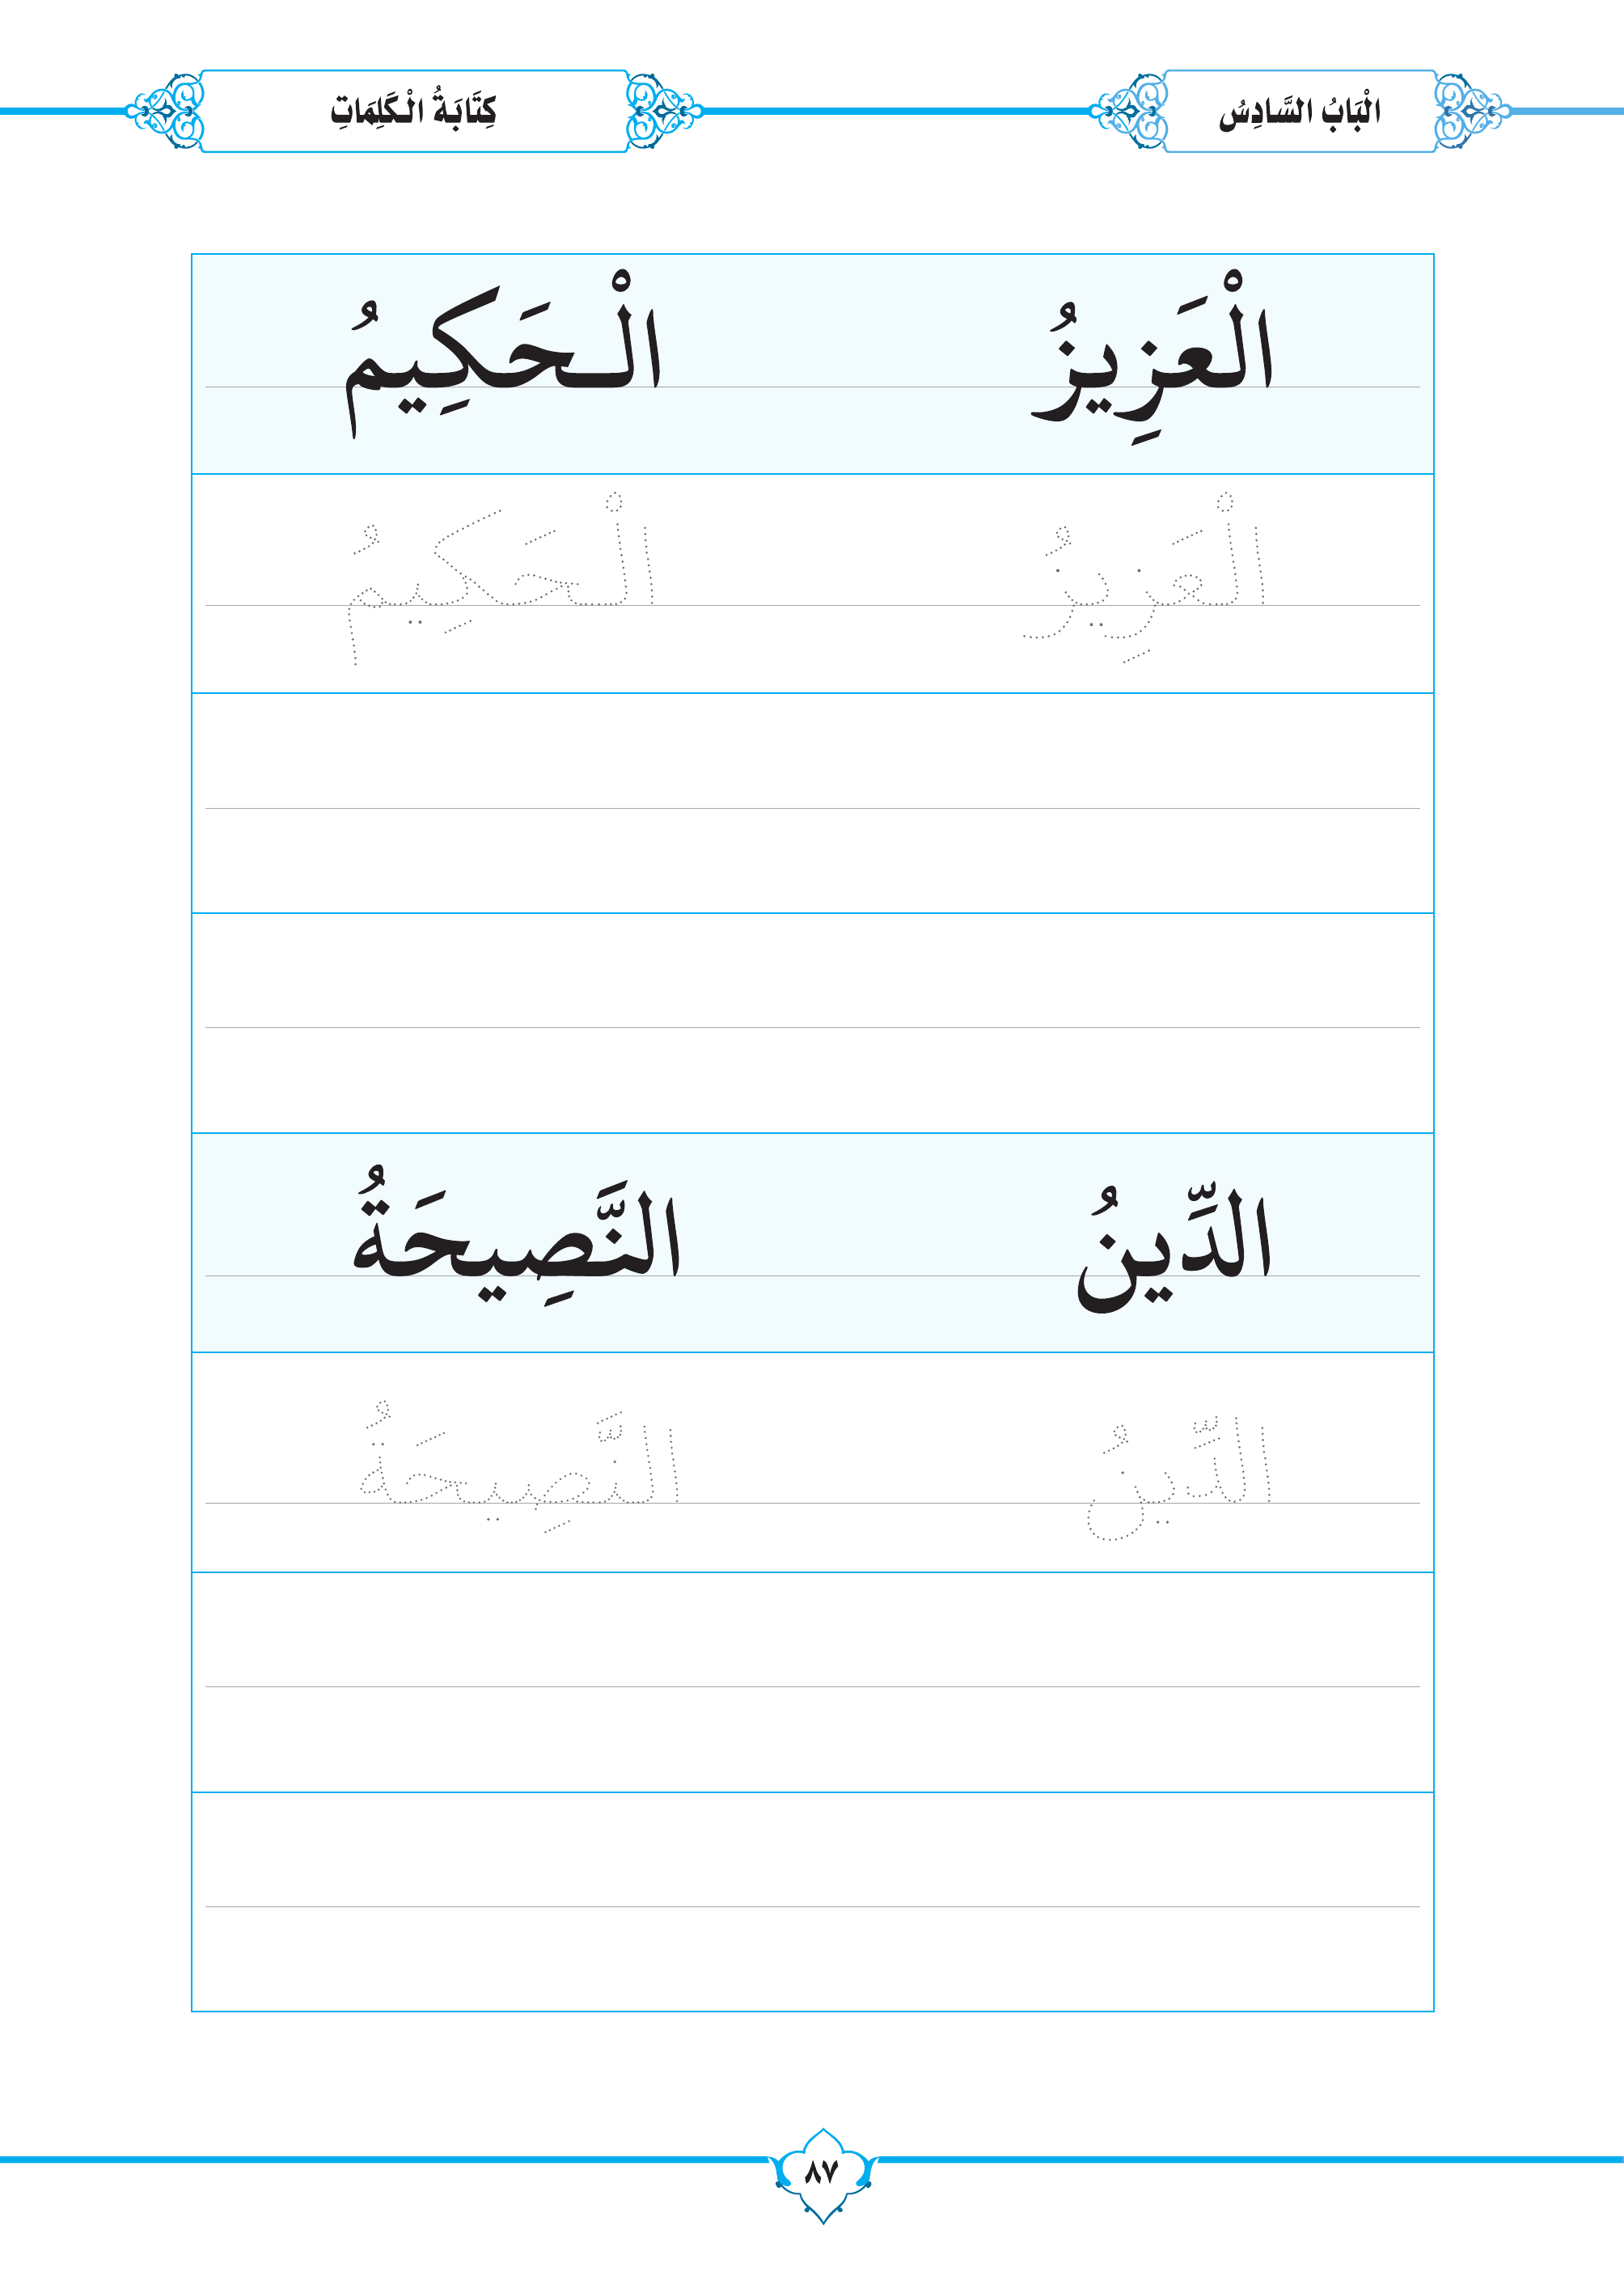 الْبَابُ السَّادِسُ
كِتَابَةُ الْكَلِمَاتِ
الْعَزِيزُ الْـحَكِيمُ
الْعَزِيزُ الْـحَكِيمُ
الدِّينُ النَّصِيحَةُ
الدِّينُ النَّصِيحَةُ
٨٧